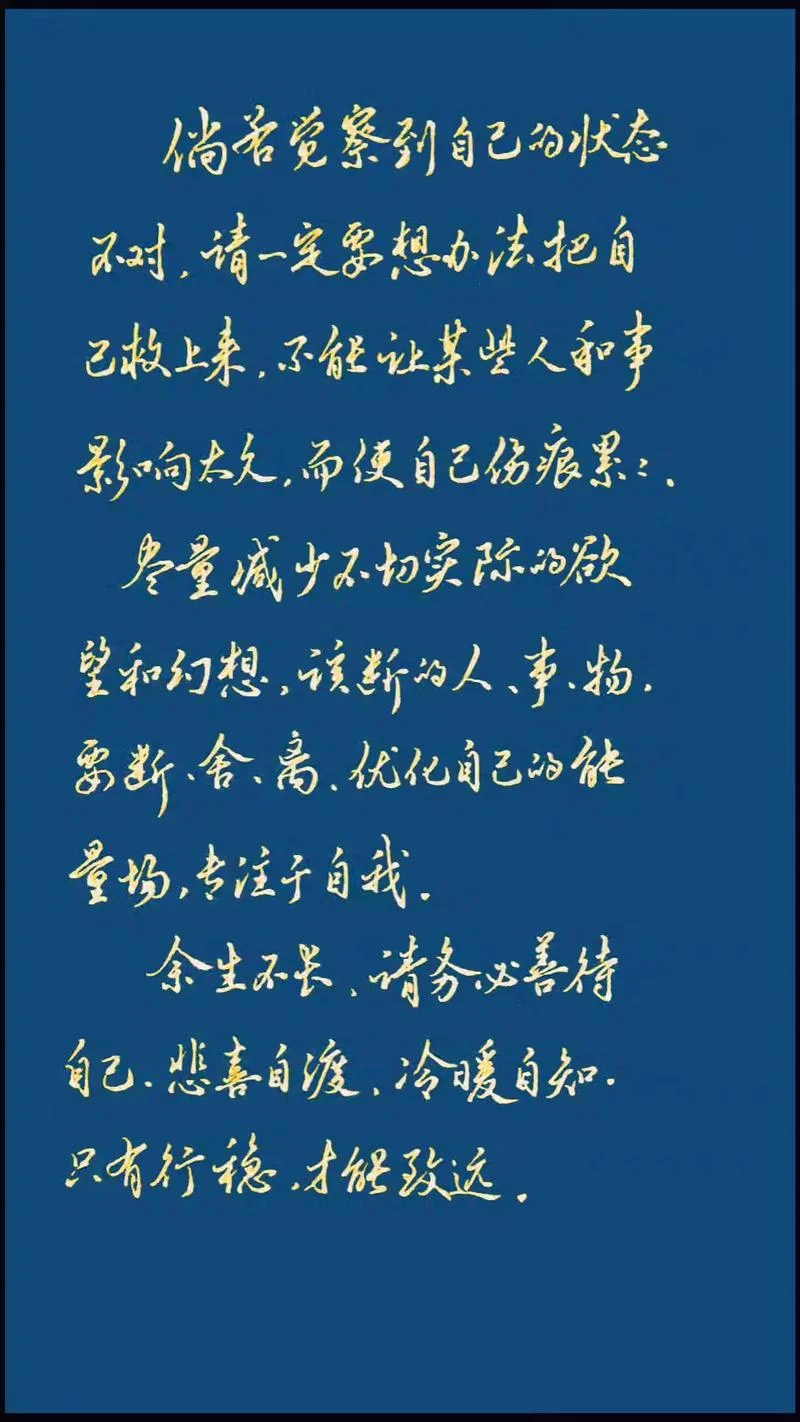 倘若觉察到自己的状态
不对,请一定要想办法把自
己救上来,不能让某些人和事
影响太久,而使自己伤痕累々.
尽量减少不切实际的欲
望和幻想,该断的人、事、物.
要断、舍、离、优化自己的能
量场,专注于自我.
余生不长、请务必善待
自己.悲喜自渡、冷暖自知.
只有行稳,才能致远.